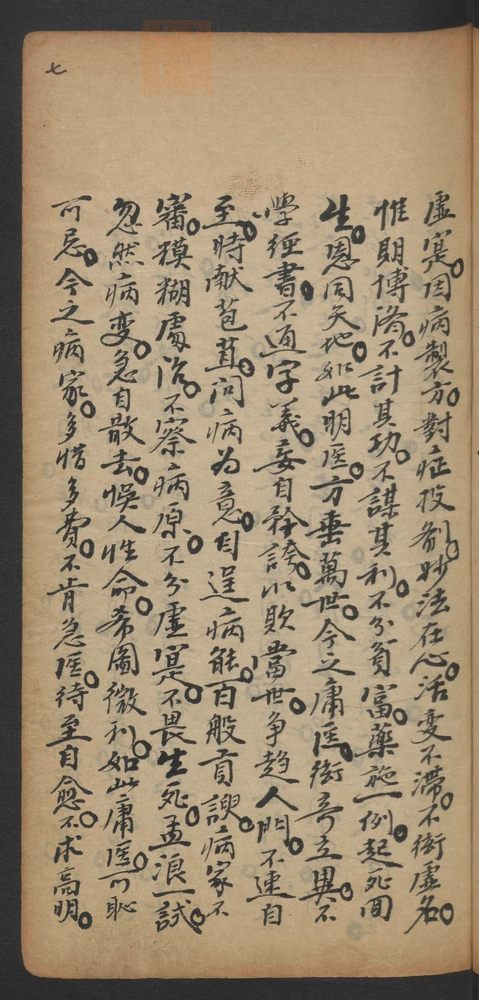 虛寔。因病製方。對症投劑。妙法在心。活变不滯。不衒虛名。
惟期博濟。不計其功。不謀其利。不分貧富。藥施一例。起死回
生。恩同天地。如此明医。方垂萬世。今之庸医。衒竒立異。不
學經書。不通字義。妄自矜誇。以欺當世。争趋人門。不速自
至。時献苞苴。问病为意。自逞病能。百般貢諛。病家不
審。模糊處治。不察病原。不分虛寔。不畏生死。孟浪一試。
忽然病变。急自散去。悮人性命。希圖微利。如此庸医。可恥
可忌。今之病家。多惜多費。不肯急医。待至自愈。不求高明。
七